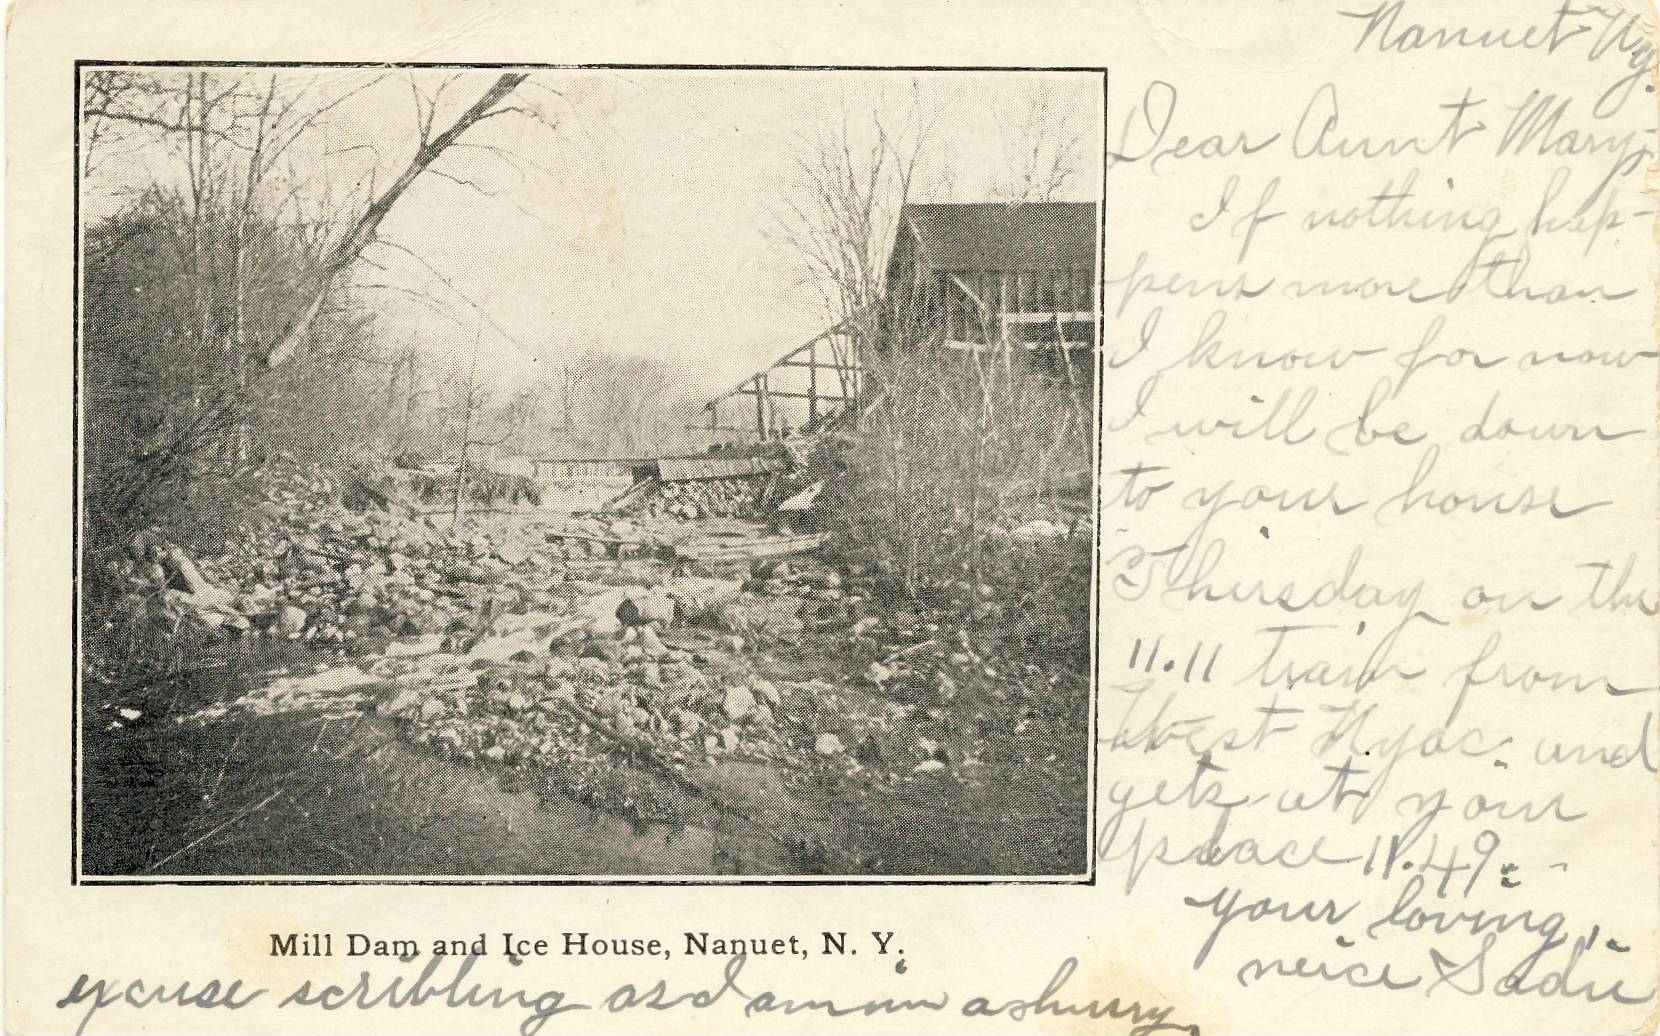 Nanuet Ny.
Dear Aunt Mary,
If nothing hap-
pens more than
I know for now
I will be down
to your house
Thursday on the
11.11 train from
West Nyac. and
gets at your
place 11.49.
your loving
neice Sadie
Mill Dam and Ice House, Nanuet, N. Y.
excuse scribbling as I am in a hurry